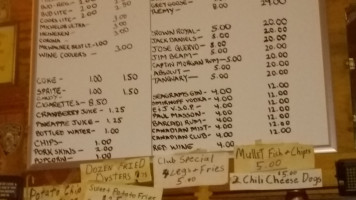 BUD LITE - 3.00
COORS LITE - 3.00
MICHELOB ULTRA -
HEINEKEN - 3.00
CORONA
MILWAUKEE BEST IC - 1.00
WINE COOLERS - 3.00
COKE - 1.00 1.50
SPRITE - 1.00 1.50
CIGARETTES - 8.50
CRANBERRY JUICE - 1.25
PINEAPPLE JUICE - 1.25
BOTTLED WATER - 1.00
CHIPS - 1.00
PORK SKINS - 2.00
POPCORN - 1.00
GREY GOOSE -
REMY - 24.00
CROWN ROYAL - 5.00 20.00
JACK DANIELS - 5.00 20.00
JOSE CUERVO - 5.00 20.00
JIM BEAM - 5.00 20.00
CAPTIN MORGAN RUM - 5.00 20.00
ABSOLUT - 5.00 20.00
TANQUERAY - 5.00 20.00
SEAGRAMS GIN - 4.00 12.00
SMIRNOFF VODKA - 4.00 12.00
E & J V.S.O.P - 4.00 12.00
PAUL MASSON - 4.00 12.00
BACARDI RUM - 4.00 12.00
CANADIAN MIST - 4.00 12.00
CANADIAN CLUB - 4.00 12.00
RED WINE - 4.00
DOZEN FRIED
OYSTERS
Club Special
5 Legs + Fries
5.00
Mullet Fish + Chips
5.00
2 Chili Cheese Dogs
Potato Chip
Sweet Potato Fries